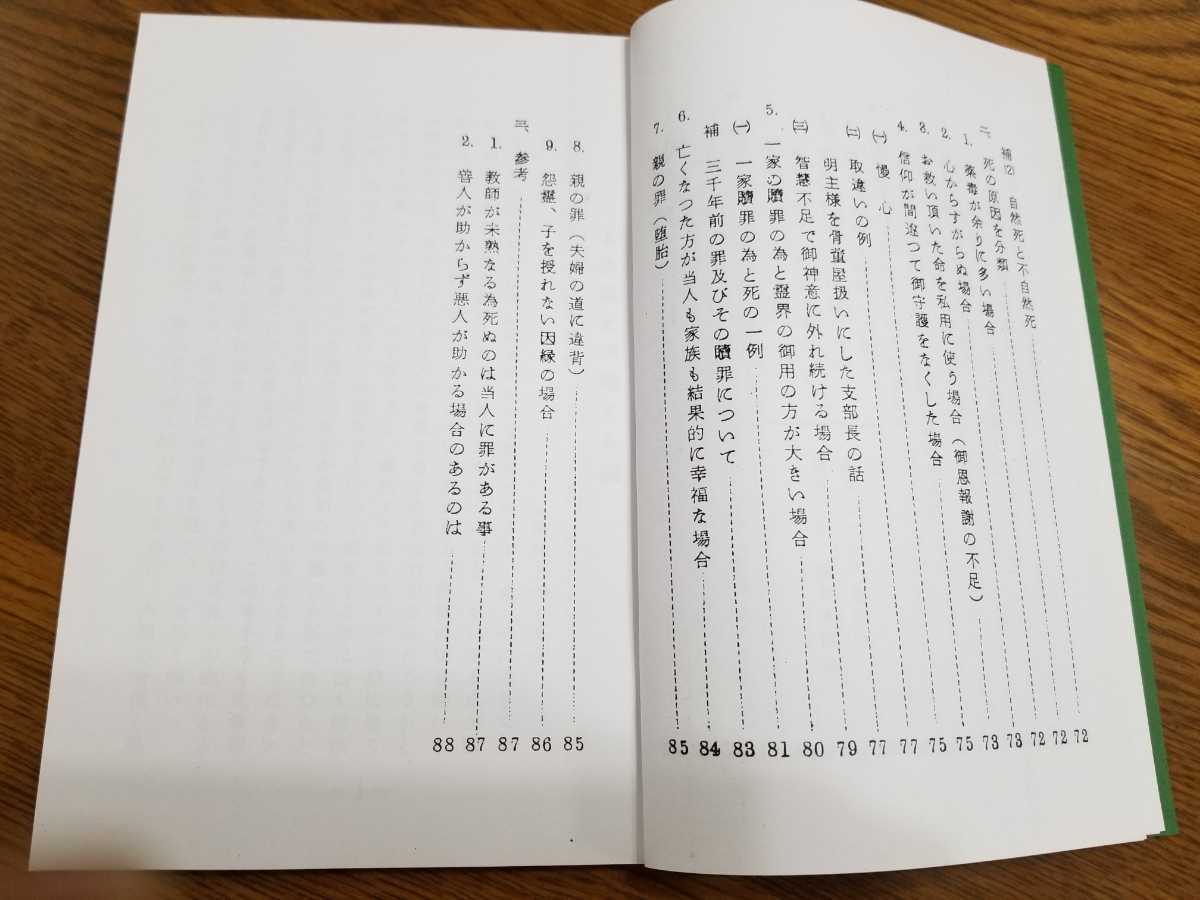 補(2) 自然死と不自然死 72
二、死の原因を分類 72
1. 薬毒が余りに多い場合 72
2. 心からすがらぬ場合 73
3. お救い頂いた命を私用に使う場合(御恩報謝の不足) 73
4. 信仰が間違つて御守護をなくした場合 75
(一) 慢心 75
(二) 取違いの例 77
明主様を骨董屋扱いにした支部長の話 77
(三) 智慧不足で御神意に外れ続ける場合 79
5. 一家の贖罪の為と靈界の御用の方が大きい場合 80
(一) 一家贖罪の為と死の一例 81
補 三千年前の罪及びその贖罪について 83
6. 亡くなつた方が当人も家族も結果的に幸福な場合 84
7. 親の罪(堕胎) 85
8. 親の罪(夫婦の道に違背) 85
9. 怨靈、子を授れない因縁の場合 86
三、参考 87
1. 教師が未熟なる為死ぬのは当人に罪がある事 87
2. 善人が助からず悪人が助かる場合のあるのは 88